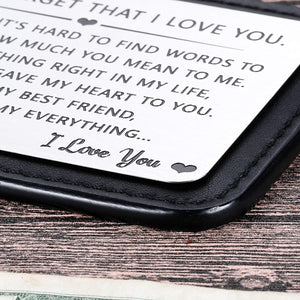 RGET THAT I LOVE YOU.
IT'S HARD TO FIND WORDS TO
OW MUCH YOU MEAN TO ME.
THING RIGHT IN MY LIFE,
GAVE MY HEART TO YOU.
MY BEST FRIEND,
MY EVERYTHING...
I Love You